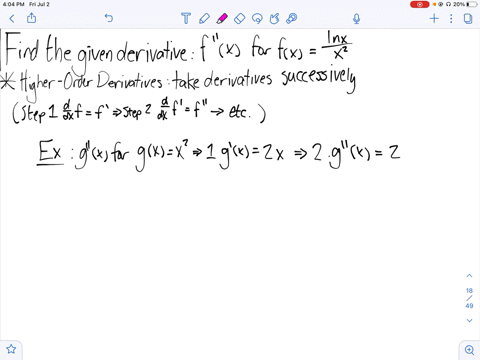 4:04 PM Fri Jul 2
20%
Find the given derivative: f"(x) for f(x) = lnx/x²
* Higher-Order Derivatives: take derivatives successively
(Step 1 d/dx f = f' ⇒ Step 2 d/dx f' = f" → etc.)
Ex: g"(x) for g(x)=x² ⇒ 1. g'(x) = 2x ⇒ 2. g"(x) = 2
18
/
49